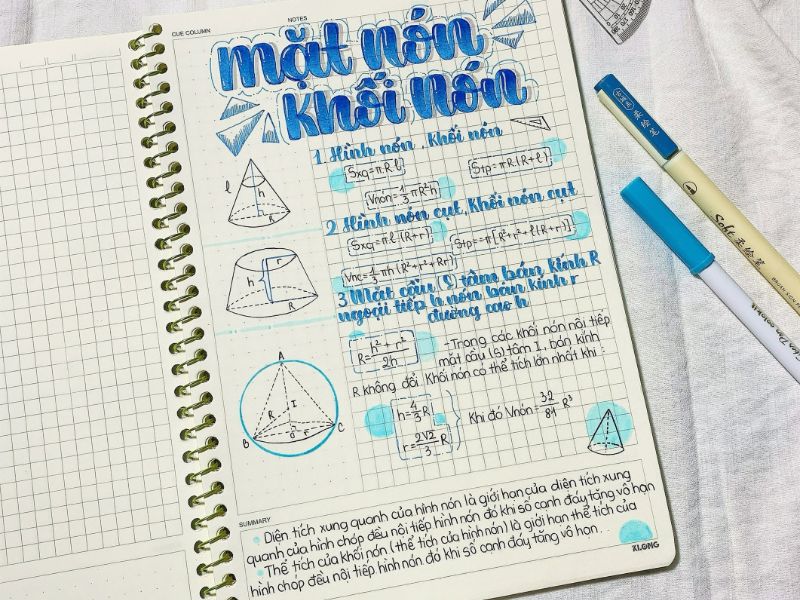 CUE COLUMN
NOTES
mặt nón
khối nón
1. Hình nón, Khối nón
Sxq=πRl
Stp=πR(R+l)
Vnón=1/3πR²h
l
h
R
2. Hình nón cụt, Khối nón cụt
Sxq=πl.(R+r)
Stp=π[R²+r²+l(R+r)]
Vnc=1/3πh(R²+r²+Rr)
r
h
R
3. Mặt cầu (S) tâm bán kính R
ngoại tiếp h nón bán kính r
đường cao h
R=h²+r²/2h
-Trong các khối nón nội tiếp
mặt cầu (S) tâm I, bán kính
R không đổi. Khối nón có thể tích lớn nhất khi:
h=4/3R
r=2√2/3R
Khi đó Vnón=32/81R³
A
R
I
B
r
C
SUMMARY
Diện tích xung quanh của hình nón là giới hạn của diện tích xung
quanh của hình chóp đều nội tiếp hình nón đó khi số cạnh đáy tăng vô hạn
Thể tích của khối nón (thể tích của hình nón) là giới hạn thể tích của
hình chóp đều nội tiếp hình nón đó khi số cạnh đáy tăng vô hạn.
KLONG
Soft